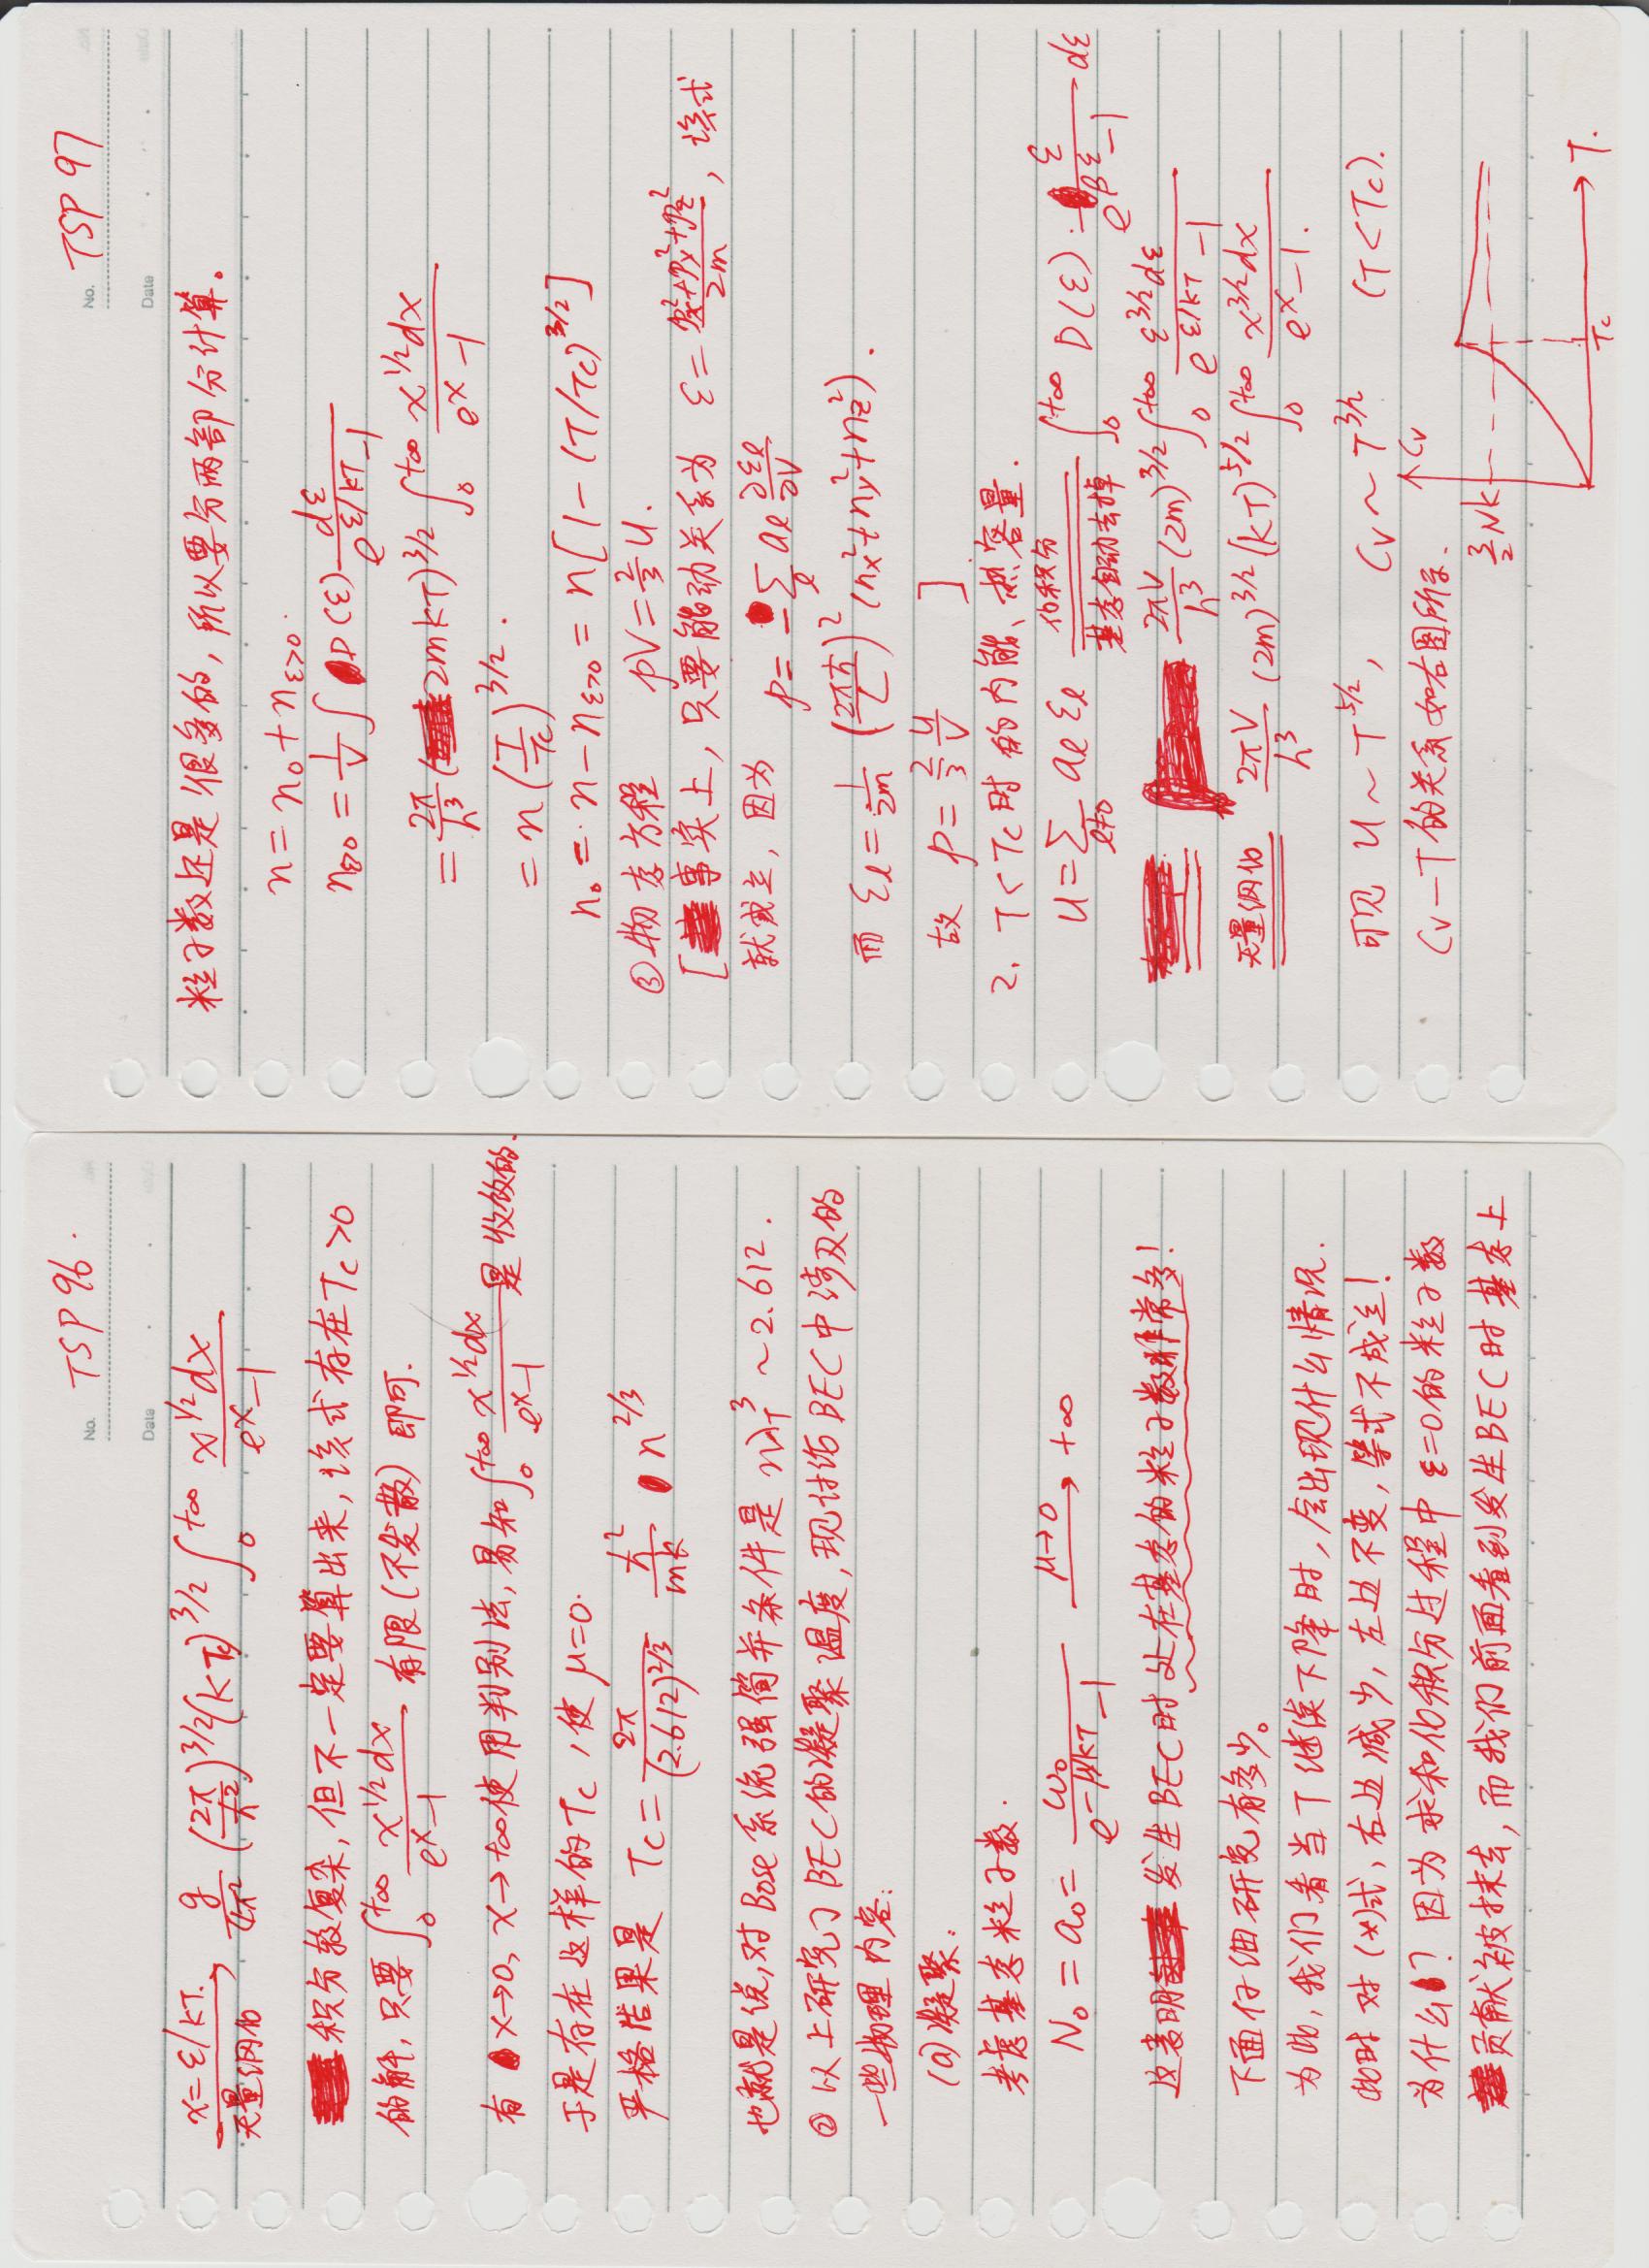 No. TSP 96.
Date
x=ε/kT. 无量纲化 → g/4π² (2π/ħ²)^3/2 (kTc)^3/2 ∫_0^+∞ x^1/2 dx / e^x−1
积分较复杂, 但不一定要算出来, 该式存在 Tc>0
的解, 只要 ∫_0^+∞ x^1/2 dx / e^x−1 有限(不发散) 即可.
有 x→0, x→+∞ 使用判别法, 易知 ∫_0^+∞ x^1/2 dx / e^x−1 是收敛的.
于是存在这样的Tc, 使 μ=0.
严格结果是 Tc = 2π/(2.612)^2/3 ħ²/mk n^2/3
也就是说, 对 Bose 系统强简并条件是 nλ_T^3 ~ 2.612.
② 以上研究了 BEC 的凝聚温度, 现讨论 BEC 中涉及的
一些物理内容:
(a) 凝聚:
考虑基态粒子数.
N₀ = a₀ = ω₀ / e^−μ/kT −1 μ→0 → +∞
这表明 发生BEC时处在基态的粒子数非常多!
下面仔细研究有多少。
为此, 我们看当T继续下降时, 会出现什么情况.
此时对(*)式, 右边减少, 左边不变, 等式不成立!
为什么? 因为求和化积分过程中 ε=0 的粒子数
贡献被抹去, 而我们前面看到发生BEC时基态上
No. TSP 97
Date
粒子数还是很多的, 所以要分两部分计算。
n = n₀ + n_ε>0.
n_ε>0 = 1/V ∫ D(ε) dε / e^ε/kT −1
= 2π/h³ (2mkT)^3/2 ∫_0^+∞ x^1/2 dx / e^x −1
= n (T/Tc)^3/2.
n₀ = n − n_ε>0 = n[1 − (T/Tc)^3/2]
③ 物态方程 pV = 2/3 U.
[ 事实上, 只要能动关系为 ε = px²+py²+pz² / 2m, 该式
就成立, 因为 p = −∑_l a_l ∂ε_l/∂V
而 ε_l = 1/2m (2πħ/L)² (nx²+ny²+nz²).
故 p = 2/3 U/V ]
2. T<Tc 时的内能、热容量.
U = ∑_l≠0 a_l ε_l 化积分 基态自动去掉 ∫_0^+∞ D(ε) · ε / e^βε −1 dε
2πV/h³ (2m)^3/2 ∫_0^+∞ ε^3/2 dε / e^ε/kT −1
无量纲化 2πV/h³ (2m)^3/2 (kT)^5/2 ∫_0^+∞ x^3/2 dx / e^x −1.
可见 U ~ T^5/2, Cv ~ T^3/2 (T<Tc).
Cv−T的关系如右图所示.
Cv
3/2 Nk
Tc
T.